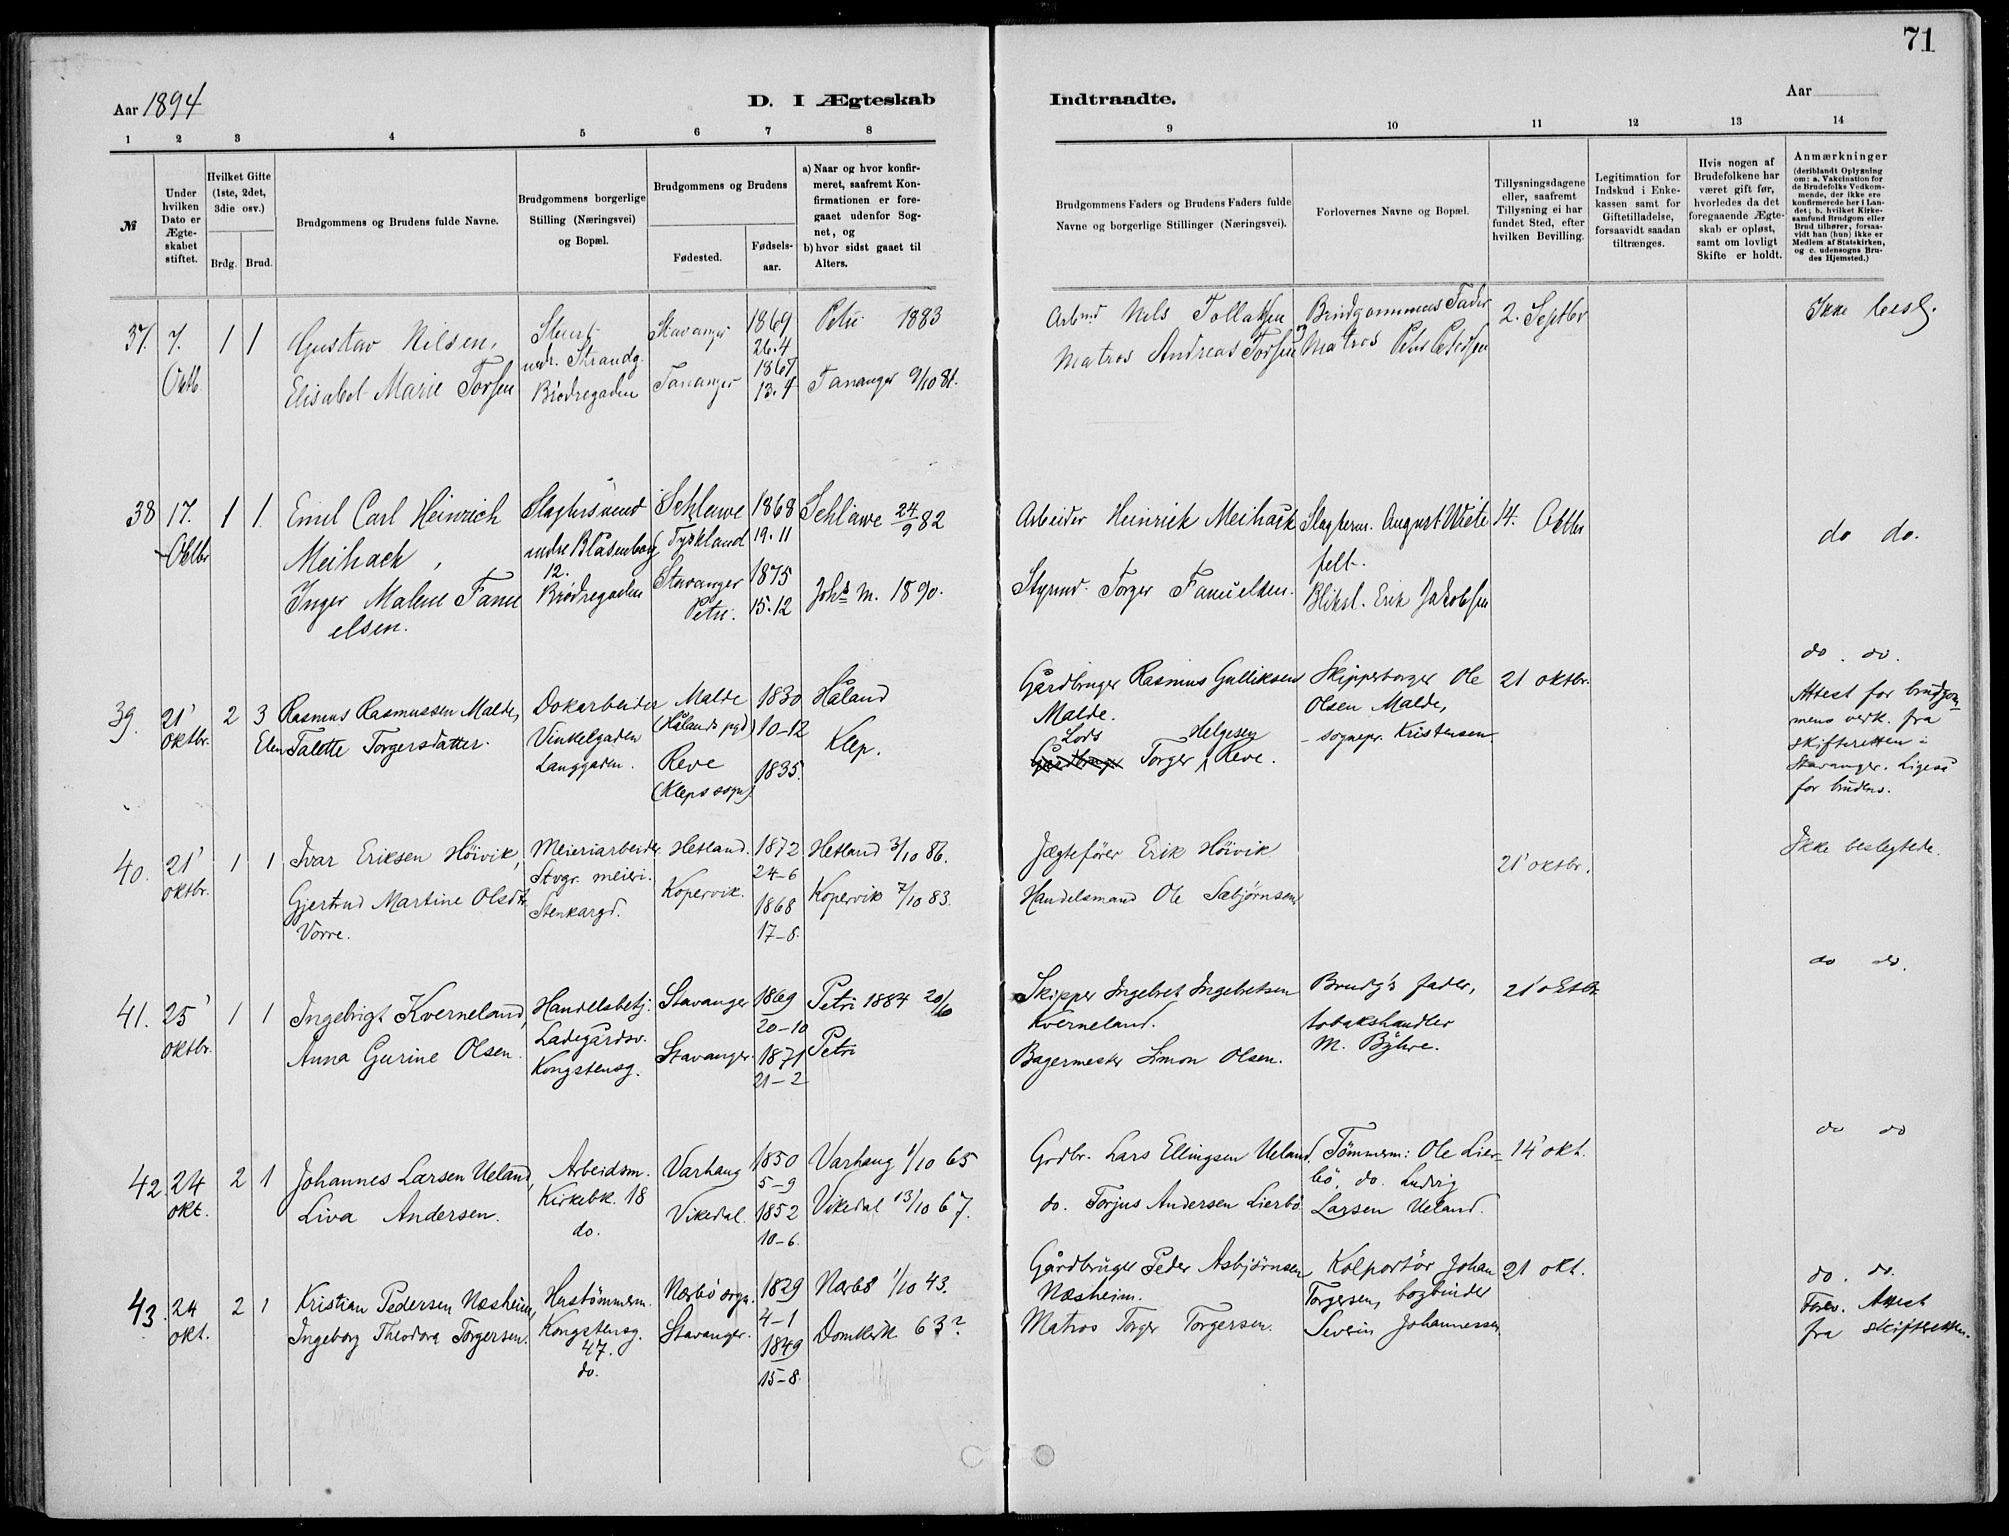 71
Aar 1894
D. I Ægteskab
Indtraadte.
Aar
1 2 3 4 5 6 7 8
9 10 11 12 13 14
№
Under hvilken Dato er Ægte-skabet stiftet.
Hvilket Gifte (1ste, 2det, 3die osv.)
Brdg. Brud.
Brudgommens og Brudens fulde Navne.
Brudgommens borgerlige Stilling (Næringsvei) og Bopæl.
Brudgommens og Brudens
Fødested.
Fødsels-aar.
a) Naar og hvor konfir-meret, saafremt Kon-firmationen er fore-gaaet udenfor Sog-net, og
b) hvor sidst gaaet til Alters.
Brudgommens Faders og Brudens Faders fulde Navne og borgerlige Stillinger (Næringsvei).
Forlovernes Navne og Bopæl.
Tillysningsdagene eller, saafremt Tillysning ei har fundet Sted, efter hvilken Bevilling.
Legitimation for Indskud i Enke-kassen samt for Giftetilladelse, forsaavidt saadan tiltrænges.
Hvis nogen af Brudefolkene har været gift før, hvorledes da det foregaaende Ægte-skab er opløst, samt om lovligt Skifte er holdt.
Anmærkninger (deriblandt Oplysning om: a. Vakcination for de Brudefolks Vedkom-mende, der ikke ere konfirmerede her i Lan-det; b. hvilket Kirke-samfund Brudgom eller Brud tilhører, forsaa-vidt han (hun) ikke er Medlem af Statskirken, og c. udensogns Bru-des Hjemsted.)
37. 7. Oktb. 1 1
Gustav Nilsen,
Elisabet Marie Torsen
ndr. Strandg.
Brødregaden
Stavanger
Tananger
1869
26.4
1867
13.4
Petri 1883
Tananger 9/10 81.
Nils Tollaksen
Matros Andreas Torsen
Brudgommens Fader
Matros
2. Septbr
Ikke besl.
38 17. Oktbr 1 1.
Emil Carl Heinrich
Meihack,
Inger Malene Samu
elsen.
Slagtersvend
ndre Blåsenborg
12.
Brødregaden
Schlawe
Tyskland
Stavanger
Petri.
1868
19.11
1875
15.12
Schlawe 24/9 82
Johs m. 1890.
Arbeider Heinrick Meihack
Styrmd. Torger Samuelsen.
Slagterm. August Wiete
felt.
Bliksl. Erik Jakobsen
14. Oktbr
do do.
39. 21' oktbr. 2 3
Rasmus Rasmussen Malde,
Talette Torgersdatter.
Dokarbeider
Vinkelgaden
Langgaden.
Malde
(Hålands pgd)
Reve
(Kleps sogn)
1830
10-12
1835.
Håland
Klep.
Gårdbruger Rasmus Gulliksen
Malde.
Lods Helgesen
Torger Reve.
Skipperborger Ole
Olsen Malde,
- sognepr. Kristensen.
21' oktbr.
do. do.
Attest for brudgom-
mens verk. fra
skifteretten i
Stavanger. Ligeså
for brudens.
40. 21' oktbr. 1 1
Ivar Eriksen Höivik,
Gjertrud Martine Olsdtr
Vorre.
Meieriarbeider
Stvgr. meieri.
Stenkargd.
Hetland.
Kopervik.
1872
24-6
1868
17-8.
Hetland 3/10 86.
Kopervik 7/10 83.
Jægtefører Erik Höivik
Handelsmand Ole Sæbjörnsen
21' oktbr.
Ikke beslegtede.
41. 25' oktbr. 1 1
Ingebrigt Kverneland,
Anna Gurine Olsen.
Handelsbetj.
Ladegårdsv.
Kongstensg.
Stavanger
Stavanger.
1869
20-10
1871
21-2
Petri 1884
Petri
Skipper Ingebret Ingebretsen
Kverneland.
Bagermester Simon Olsen.
Brudg's fader,
tobakshandler
21' oktbr
do do.
42. 24 okt. 2 1
Johannes Larsen Ueland,
Liva Andersen.
Arbeidsm.
Kirkebk. 18
do.
Varhaug
Vikedal.
1850
5-9
1852
10-6.
Varhaug 1/10 65
Vikedal 13/10 67.
Grdbr. Lars Ellingsen Ueland.
do. Torjus Andersen Lierbö.
Tömmerm: Ole Lier-
bö, do. Ludvig
Larsen Ueland.
14' okt.
do do
43. 24 okt. 2 1
Kristian Pedersen Næsheim,
Ingeborg Theodora Torgersen.
Hustömmerm.
Kongstensg.
47.
do.
Nærbö sogn.
Stavanger.
1829
4-1
1849
15-8.
Nærbö 1/10 43.
Domkirk 63?
Gårdbruger Peder Asbjørnsen
Næsheim.
Matros Torger Torgersen.
Kolportör Johan
Torgersen, bogbinder
Severin Johannessen.
21 okt.
do. do.
Forev. Attest
fra skifteretten.